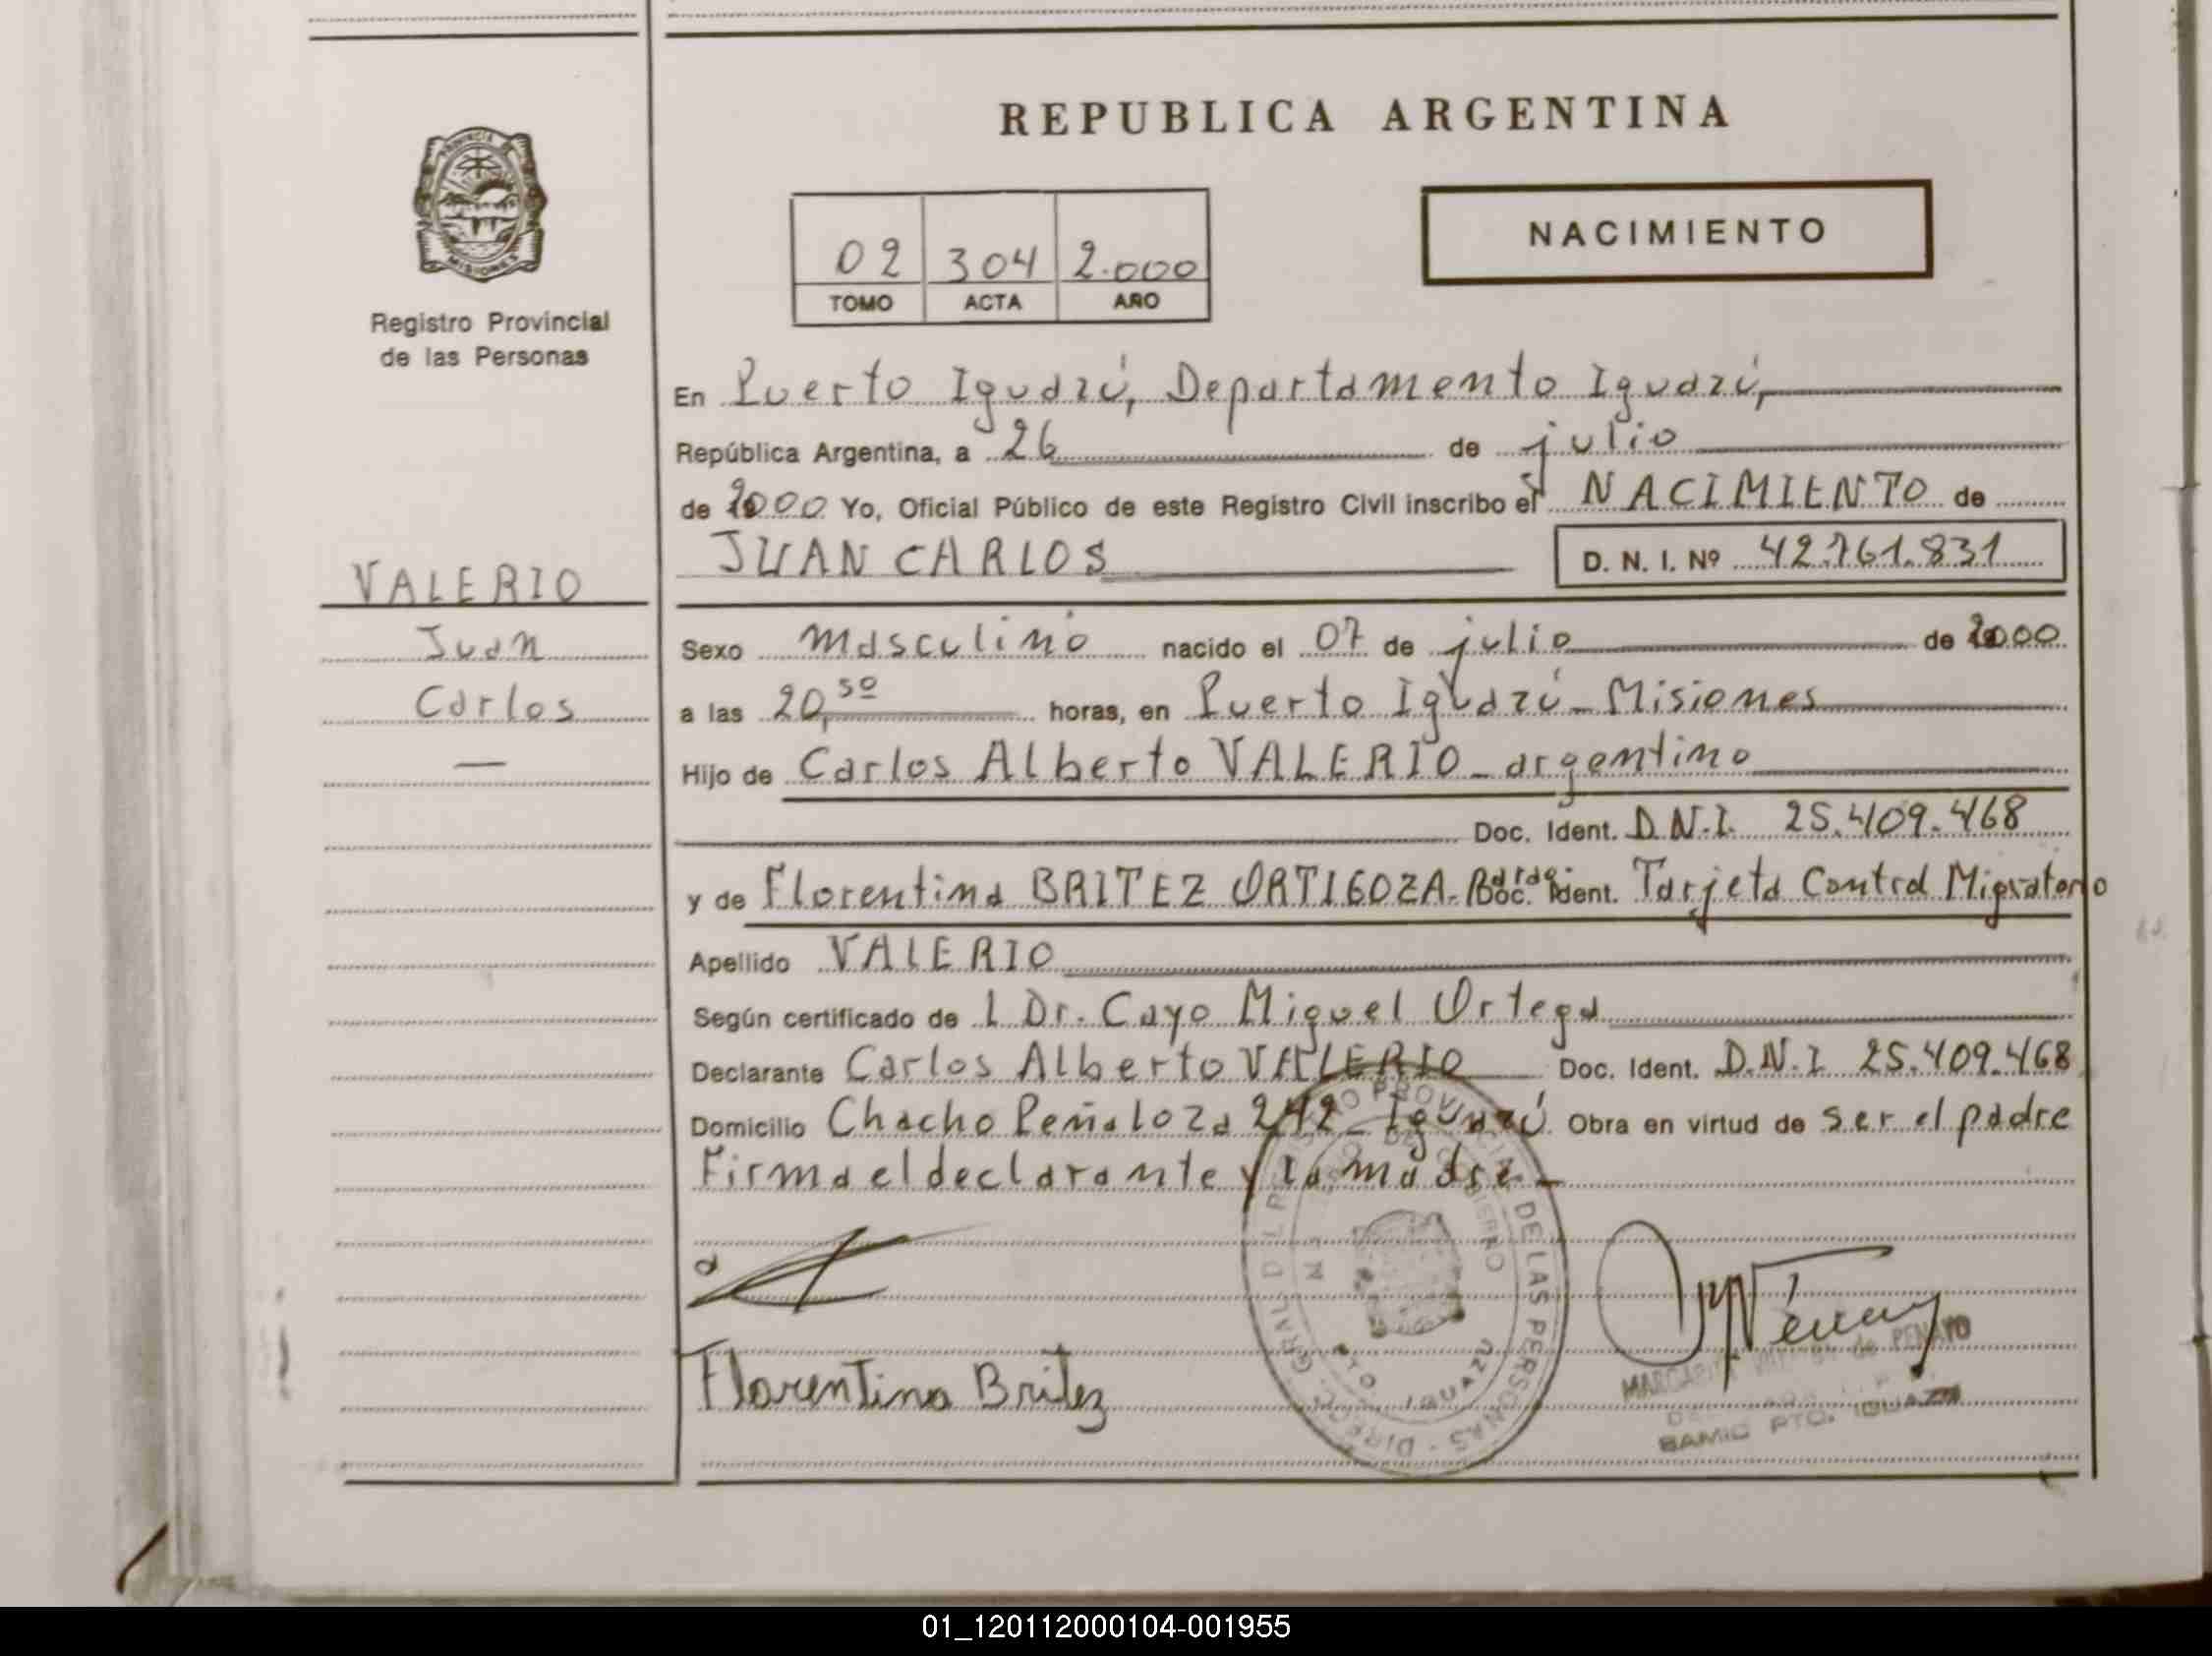 REPUBLICA ARGENTINA
PROVINCIA DE
MISIONES
Registro Provincial
de las Personas
02 304 2.000
TOMO ACTA AÑO
NACIMIENTO
En Puerto Iguazú, Departamento Iguazú,
República Argentina, a 26 de julio
de 2000 Yo, Oficial Público de este Registro Civil inscribo el NACIMIENTO de
JUAN CARLOS D. N. I. Nº 42.761.831
VALERIO
Juan
Carlos
—
Sexo masculino nacido el 07 de julio de 2000
a las 20,50 horas, en Puerto Iguazú - Misiones
Hijo de Carlos Alberto VALERIO - argentino
Doc. Ident. D.N.I. 25.409.468
y de Florentina BRITEZ ORTIGOZA - Doc. Ident. Tarjeta Control Migratorio
Apellido VALERIO
Según certificado de l Dr. Cayo Miguel Ortega
Declarante Carlos Alberto VALERIO Doc. Ident. D.N.I 25.409.468
Domicilio Chacho Peñaloza 242 - Iguazú Obra en virtud de ser el padre
Firma el declarante y la madre -
Florentina Britez
DE LAS PERSONAS - DIREC. GRAL. D L R
PTO. IGUAZU
MARGARITA de PENAYO
BAMIO PTO. IGUAZU
01_120112000104-001955